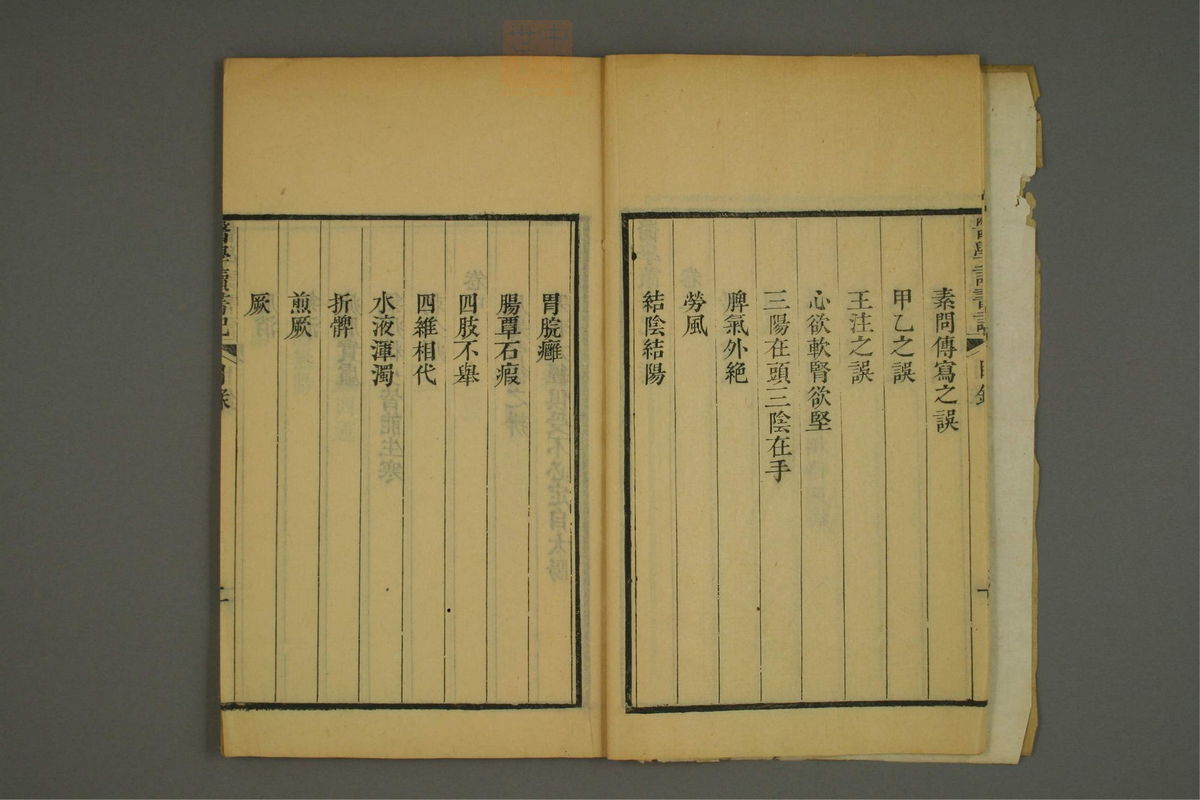 素問傳寫之誤
甲乙之誤
王注之誤
心欲軟腎欲堅
三陽在頭三陰在手
脾氣外絶
勞風
結陰結陽
胃脘癰
腸覃石瘕
四肢不舉
四維相代
水液渾濁
折髀
煎厥
厥
醫學讀書記
目錄
二